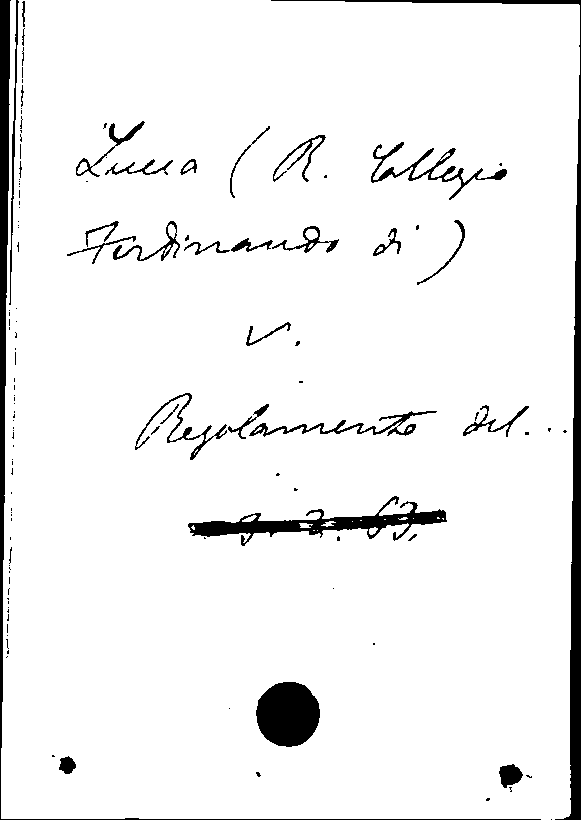 Lucca (R. Collegio
Ferdinando di)
v.
Regolamento del...
3. 2. 63.